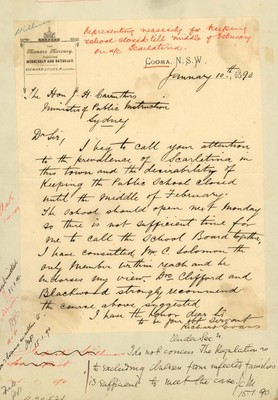 Representing necessity for keeping
school closed till middle of February
on a/c Scarlatina.
Manaro Mercury,
WEDNESDAY AND SATURDAY.
COOMA, N.S.W.
January 10th, 1890
The Hon J. H. Carruthers
Minister of Public Instruction
Sydney
Dr Sir,
I beg to call your attention
to the prevalence of Scarletina in
this town and the desirability of
Keeping the Public School closed
until the Middle of February.
The School should open next Monday
so there is not sufficient time for
me to call the School Board together,
I have consulted Mr C. Solomon the
only Member within reach and he
indorses my view. Drs Clifford and
Blackwood strongly recommend
the course above suggested
I have the honor dear Sir
to be your obt Servant
Richard Evans
Under Sec
I do not concur. The Regulation as
to excluding children from infected families
is sufficient to meet the case.
15.1.90